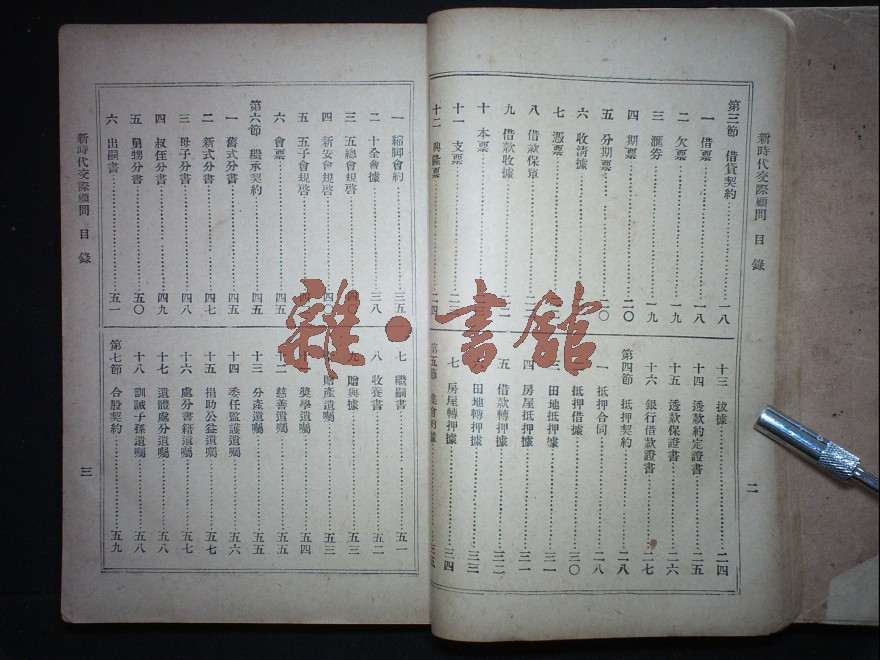 新時代交際顧問　目錄
第三節　借貸契約……一八
一　借票……一八
二　欠票……一九
三　滙券……一九
四　期票……二〇
五　分期票……二〇
六　收清據
七　憑票
八　借款保單
九　借款收據
十　本票
十一　支票
十二
十三　拔據……二四
十四　透款約定證書……二五
十五　透款保證書……二六
十六　銀行借款證書……二七
第四節　抵押契約……二八
一　抵押合同……二八
抵押借據……三〇
田地抵押據……三一
四　房屋抵押據……三一
五　借款轉押據……三二
田地轉押據……三三
七　房屋轉押據……三四
二
一　縮脚會約……三五
二　十全會據……三八
三　五總會規啓
四　新安會規啓……四〇
五　五子會規啓
六　會票……四五
第六節　繼承契約……四五
一　舊式分書……四五
二　新式分書……四七
三　母子分書……四八
四　叔侄分書……四九
五　舅甥分書……五〇
六　出嗣書……五一
七　繼嗣書……五一
八　收養書……五二
贈與據……五三
贈產遺囑……五三
獎學遺囑……五四
慈善遺囑……五五
十三　分產遺囑……五五
十四　委任監護遺囑……五六
十五　捐助公益遺囑……五七
十六　處分書籍遺囑……五七
十七　遺體處分遺囑……五八
十八　訓誡子孫遺囑……五八
第七節　合股契約……五九
新時代交際顧問　目錄
三
雜·書館